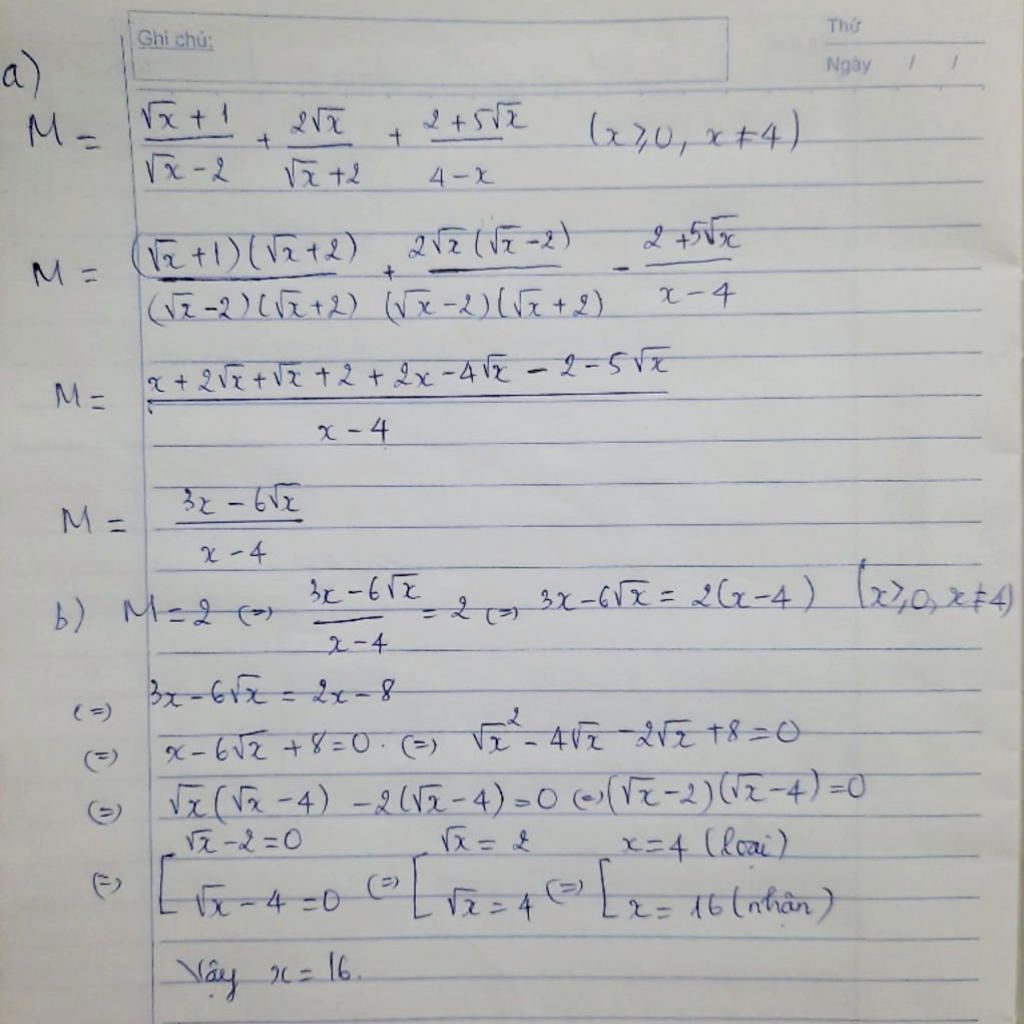 Ghi chú:
Thứ
Ngày / /
a)
M = (√x + 1)/(√x - 2) + 2√x/(√x + 2) + (2 + 5√x)/(4 - x) (x ≥ 0, x ≠ 4)
M = (√x + 1)(√x + 2)/(√x - 2)(√x + 2) + 2√x(√x - 2)/(√x - 2)(√x + 2) - (2 + 5√x)/(x - 4)
M = (x + 2√x + √x + 2 + 2x - 4√x - 2 - 5√x)/(x - 4)
M = (3x - 6√x)/(x - 4)
b) M = 2 (=) (3x - 6√x)/(x - 4) = 2 (=) 3x - 6√x = 2(x - 4) (x ≥ 0, x ≠ 4)
(=) 3x - 6√x = 2x - 8
(=) x - 6√x + 8 = 0. (=) √x² - 4√x - 2√x + 8 = 0
(=) √x(√x - 4) - 2(√x - 4) = 0 (=) (√x - 2)(√x - 4) = 0
√x - 2 = 0 √x = 2 x = 4 (loại)
(=) [ √x - 4 = 0 (=) [ √x = 4 (=) [ x = 16 (nhận)
Vậy x = 16.